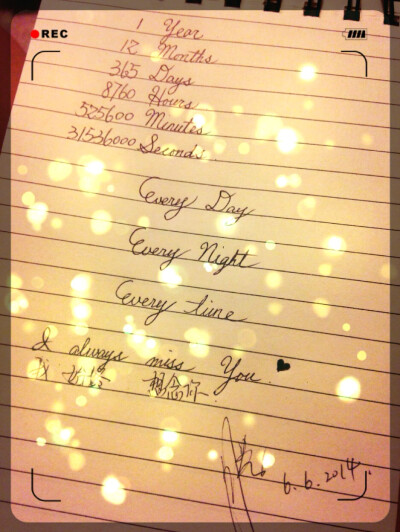 REC
1 Year
12 Months
365 Days
8760 Hours
525600 Minutes
31536000 Seconds
Every Day
Every Night
Every time
I always miss You. ♥
我 想念你
6.6.2014